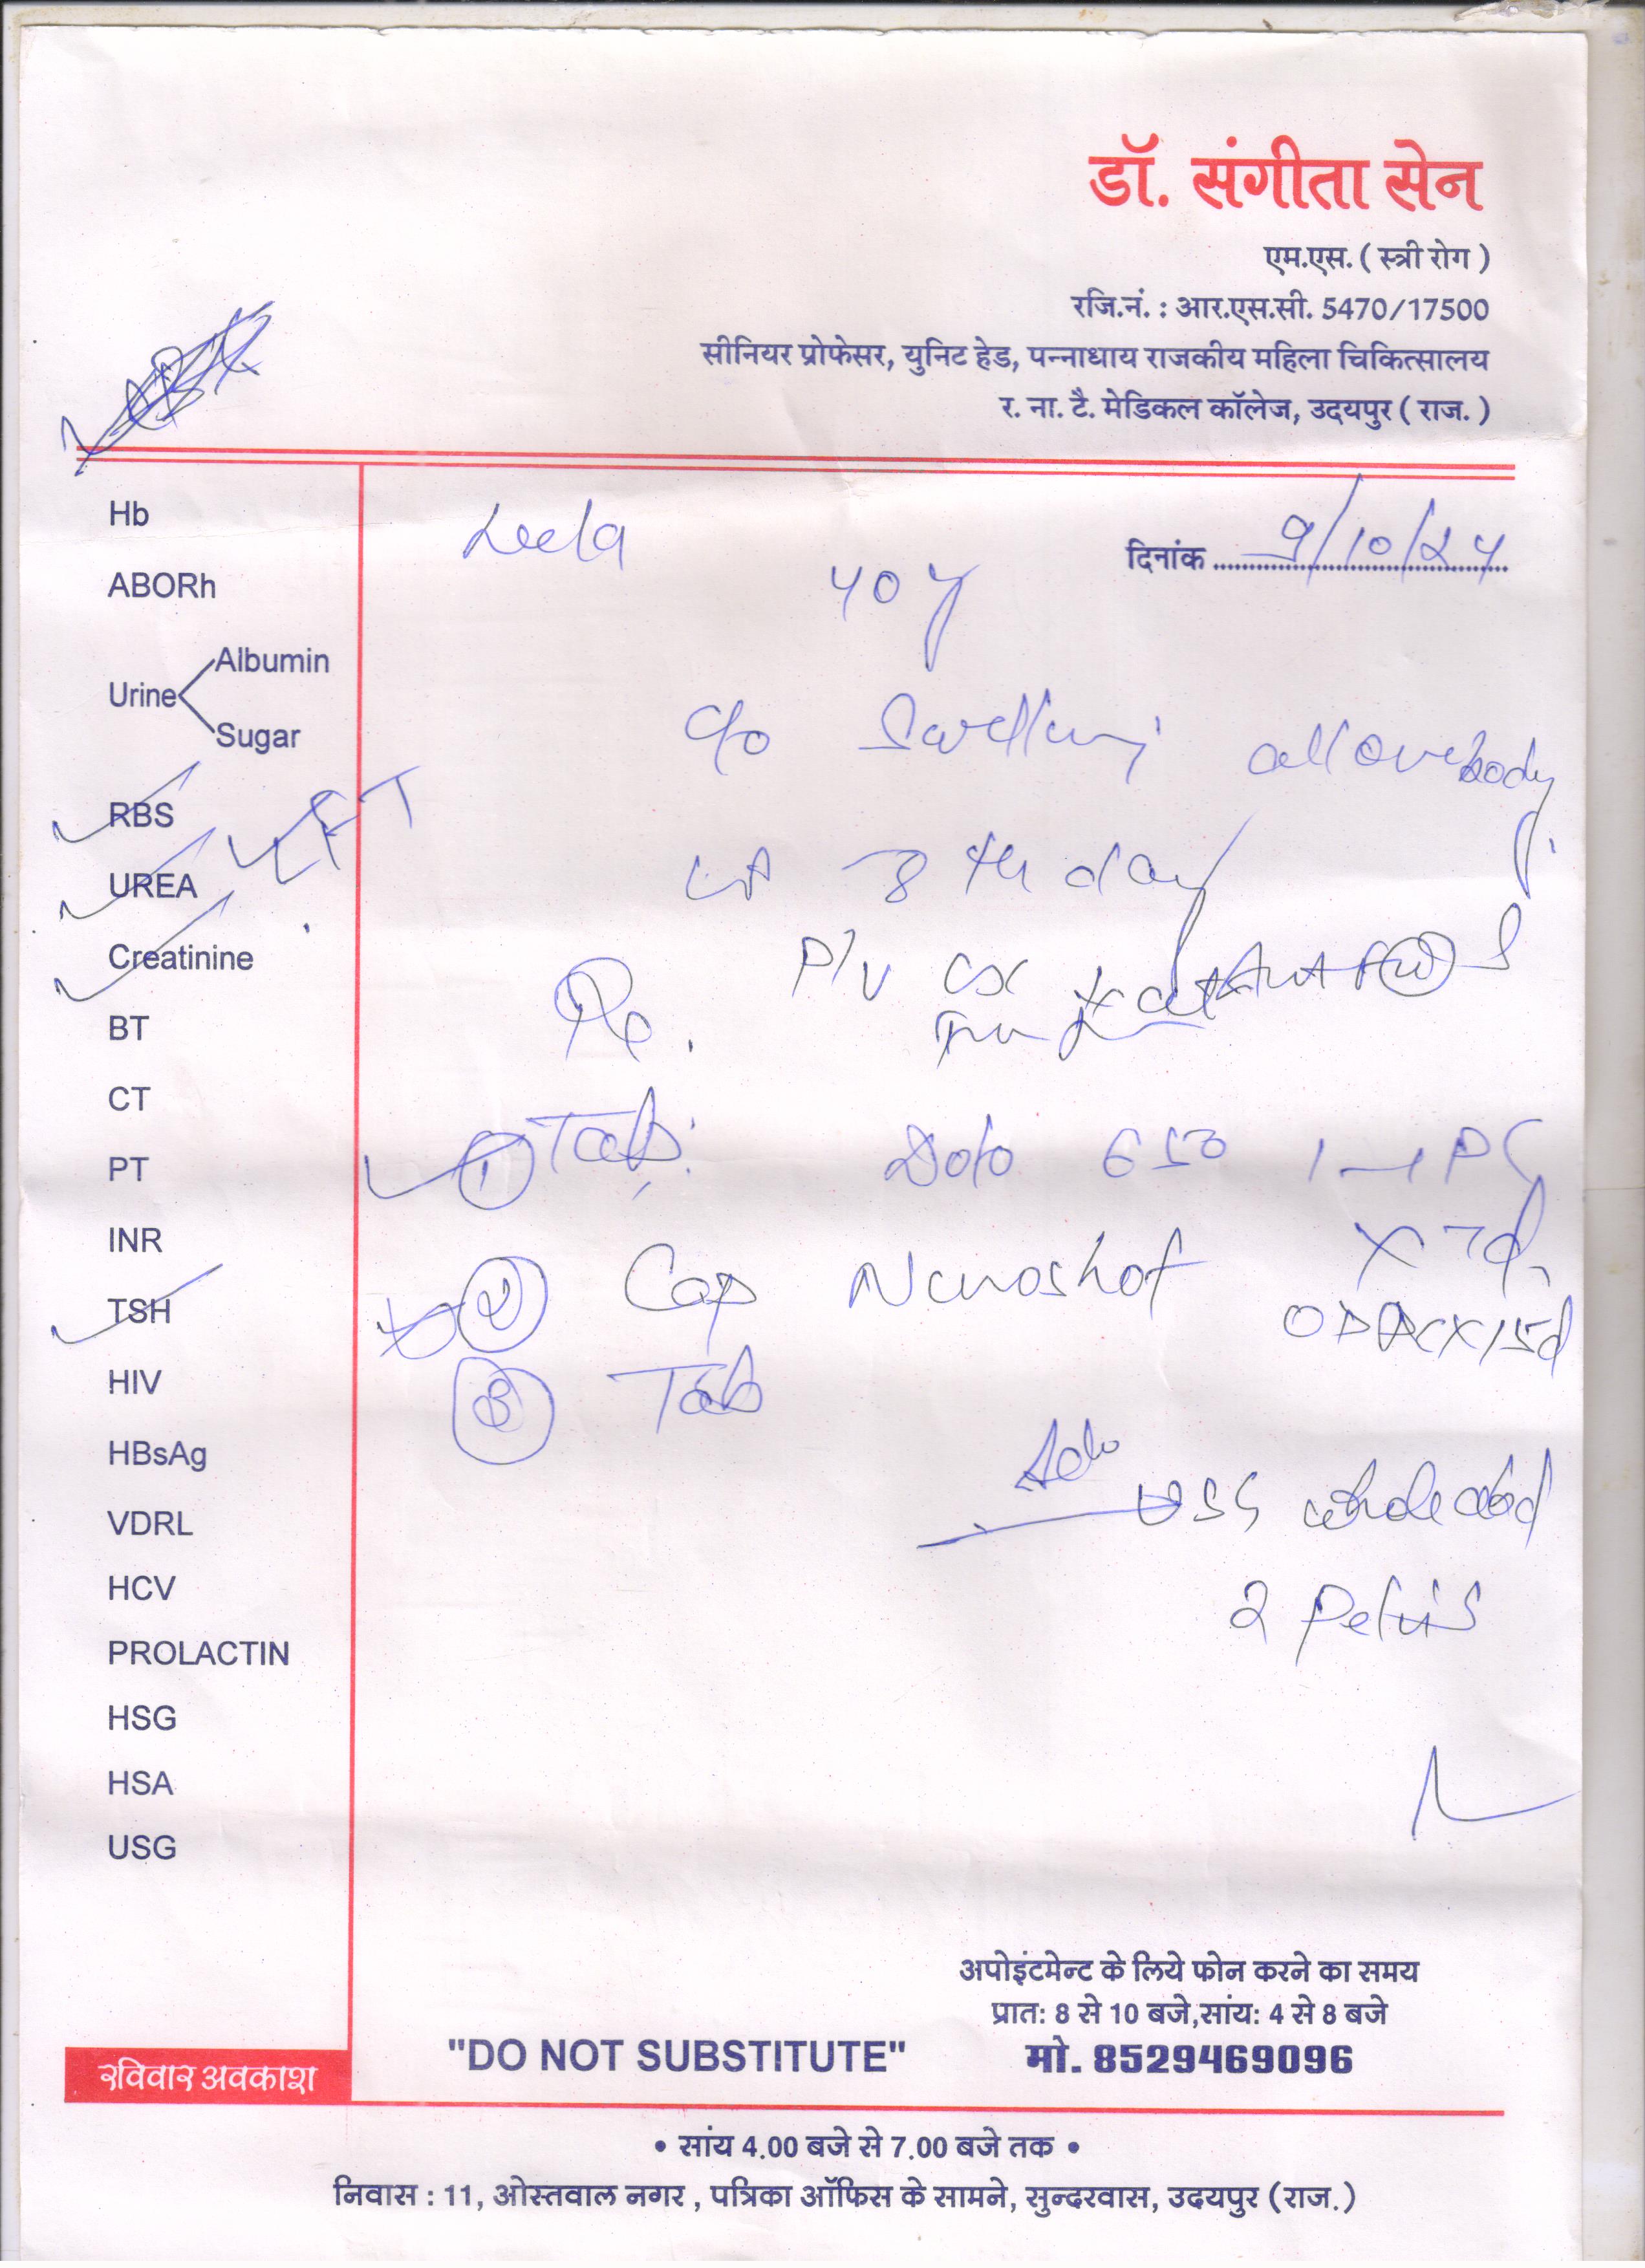 डॉ. संगीता सेन
एम.एस. ( स्त्री रोग )
रजि.नं. : आर.एस.सी. 5470/17500
सीनियर प्रोफेसर, युनिट हेड, पन्नाधाय राजकीय महिला चिकित्सालय
र. ना. टै. मेडिकल कॉलेज, उदयपुर ( राज. )
Leela
दिनांक 9/10/24
40 y
c/o Swelling all over body
8th day
P/V CX
Rx.
① Tab. Dolo 650 1-1 PC
x 7d
② Cap Nanoshot
OD PC x 15d
③ Tab
Adv
USG whole abd
2 Pelvis
Hb
ABORh
Urine
Albumin
Sugar
RBS
LFT
UREA
Creatinine
BT
CT
PT
INR
TSH
HIV
HBsAg
VDRL
HCV
PROLACTIN
HSG
HSA
USG
अपोइंटमेन्ट के लिये फोन करने का समय
प्रात: 8 से 10 बजे,सांय: 4 से 8 बजे
"DO NOT SUBSTITUTE"
मो. 8529469096
रविवार अवकाश
• सांय 4.00 बजे से 7.00 बजे तक •
निवास : 11, ओस्तवाल नगर , पत्रिका ऑफिस के सामने, सुन्दरवास, उदयपुर (राज.)